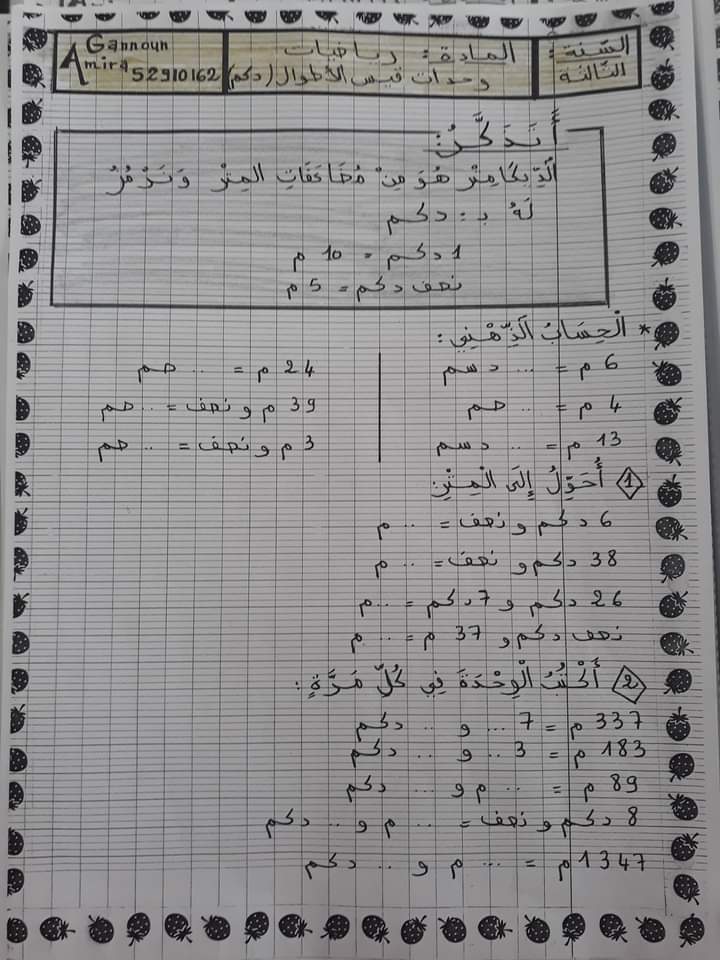 السّنة: الثّالثة
المادة: رياضيات
وحدات قيس الأطوال (دكم)
Gannoun
Amira 52910162
أَتَذَكَّرُ:
اَلدِّيكَامِتْر هُوَ مِنْ مُضَاعَفَاتِ المِتْر وَنَرْمُزُ
لَهُ بـ: دكم
1 دكم = 10 م
نصف دكم = 5 م
* الْحِسَابُ الذِّهْنِي:
6 م = ... دسم
24 م = .. صم
4 م = .. صم
39 م و نصف = .. صم
13 م = .. دسم
3 م و نصف = .. صم
1 أُحَوِّلُ إِلَى الْمِتْرِ
6 دكم و نصف = .. م
38 دكم و نصف = .. م
26 دكم و 7 دكم = ... م
نصف دكم و 37 م = ... م
2 أَكْتُبُ الْوِحْدَةَ فِي كُلِّ مَرَّةٍ:
337 م = 7 ... و .. دكم
183 م = 3 .. و .. دكم
89 م = ... م و ... دكم
8 دكم و نصف = ... م و .. دكم
1347 م = ... م و .. دكم